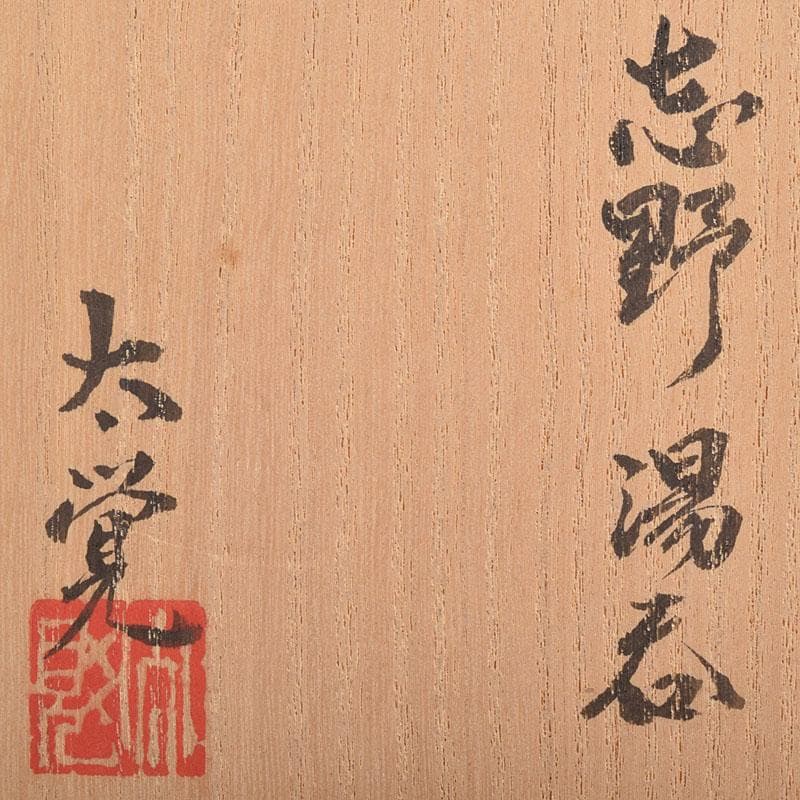 志野 湯呑
太覚